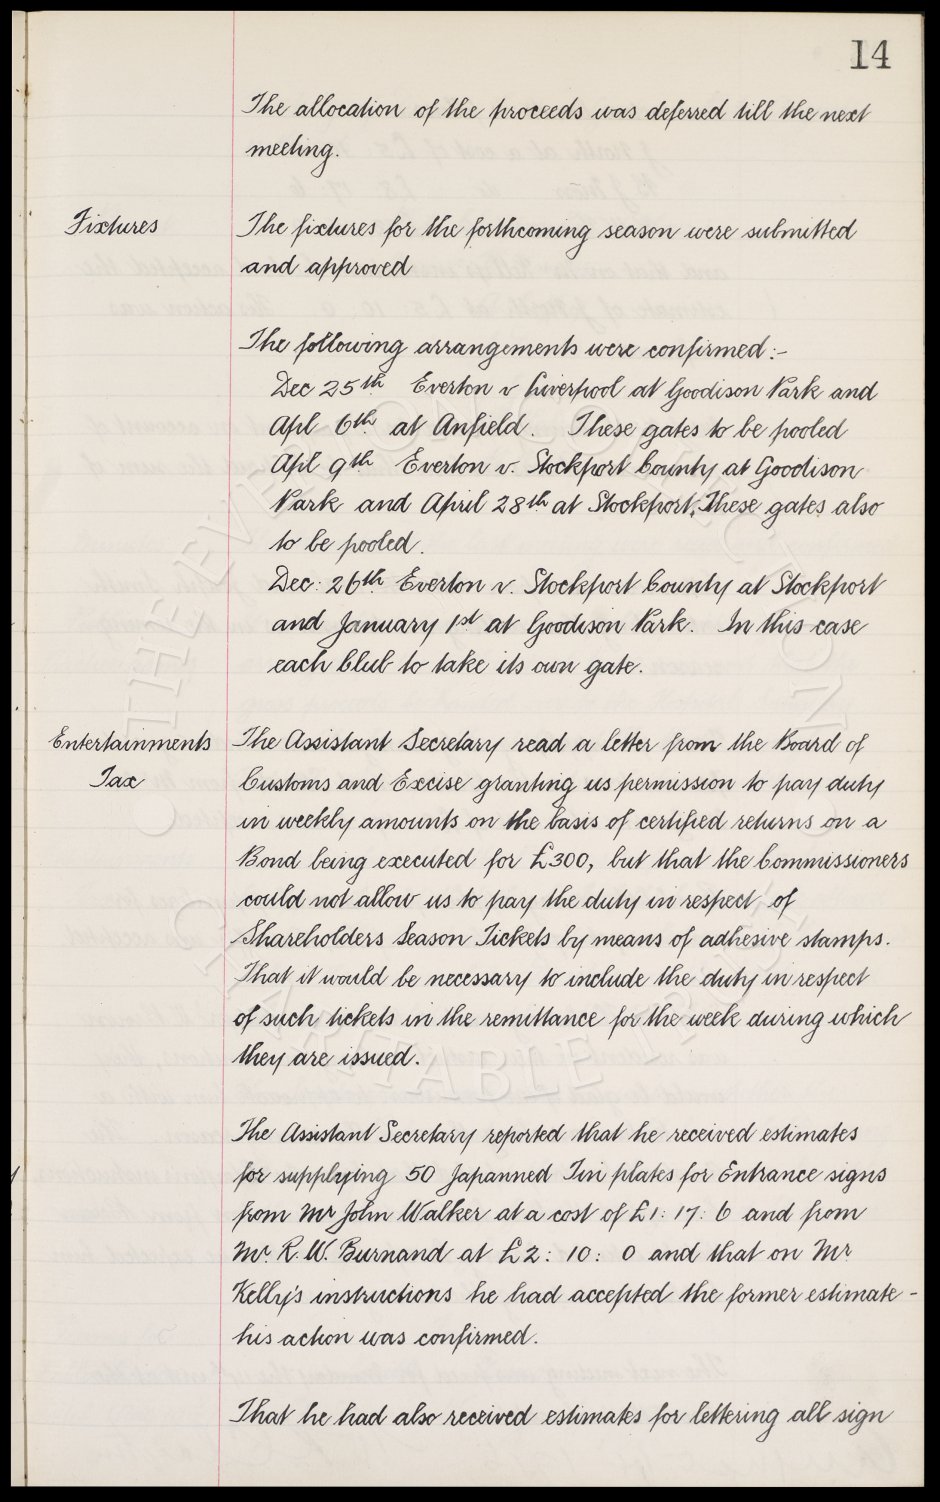 14
The allocation of the proceeds was deferred till the next
meeting.
Fixtures
The fixtures for the forthcoming season were submitted
and approved
The following arrangements were confirmed:-
Dec 25th Everton v Liverpool at Goodison Park and
Apl 6th at Anfield. These gates to be pooled
Apl 9th Everton v. Stockport County at Goodison
Park and April 28th at Stockport. These gates also
to be pooled.
Dec: 26th Everton v. Stockport County at Stockport
and January 1st at Goodison Park. In this case
each Club to take its own gate.
Entertainments
Tax
The Assistant Secretary read a letter from the Board of
Customs and Excise granting us permission to pay duty
in weekly amounts on the basis of certified returns on a
Bond being executed for £300, but that the Commissioners
could not allow us to pay the duty in respect of
Shareholders Season Tickets by means of adhesive stamps.
That it would be necessary to include the duty in respect
of such tickets in the remittance for the week during which
they are issued.
The Assistant Secretary reported that he received estimates
for supplying 50 Japanned Tin plates for Entrance signs
from Mr John Walker at a cost of £1: 17: 6 and from
Mr. R. W. Burnand at £2: 10: 0 and that on Mr
Kelly's instructions he had accepted the former estimate -
his action was confirmed.
That he had also received estimates for lettering all sign